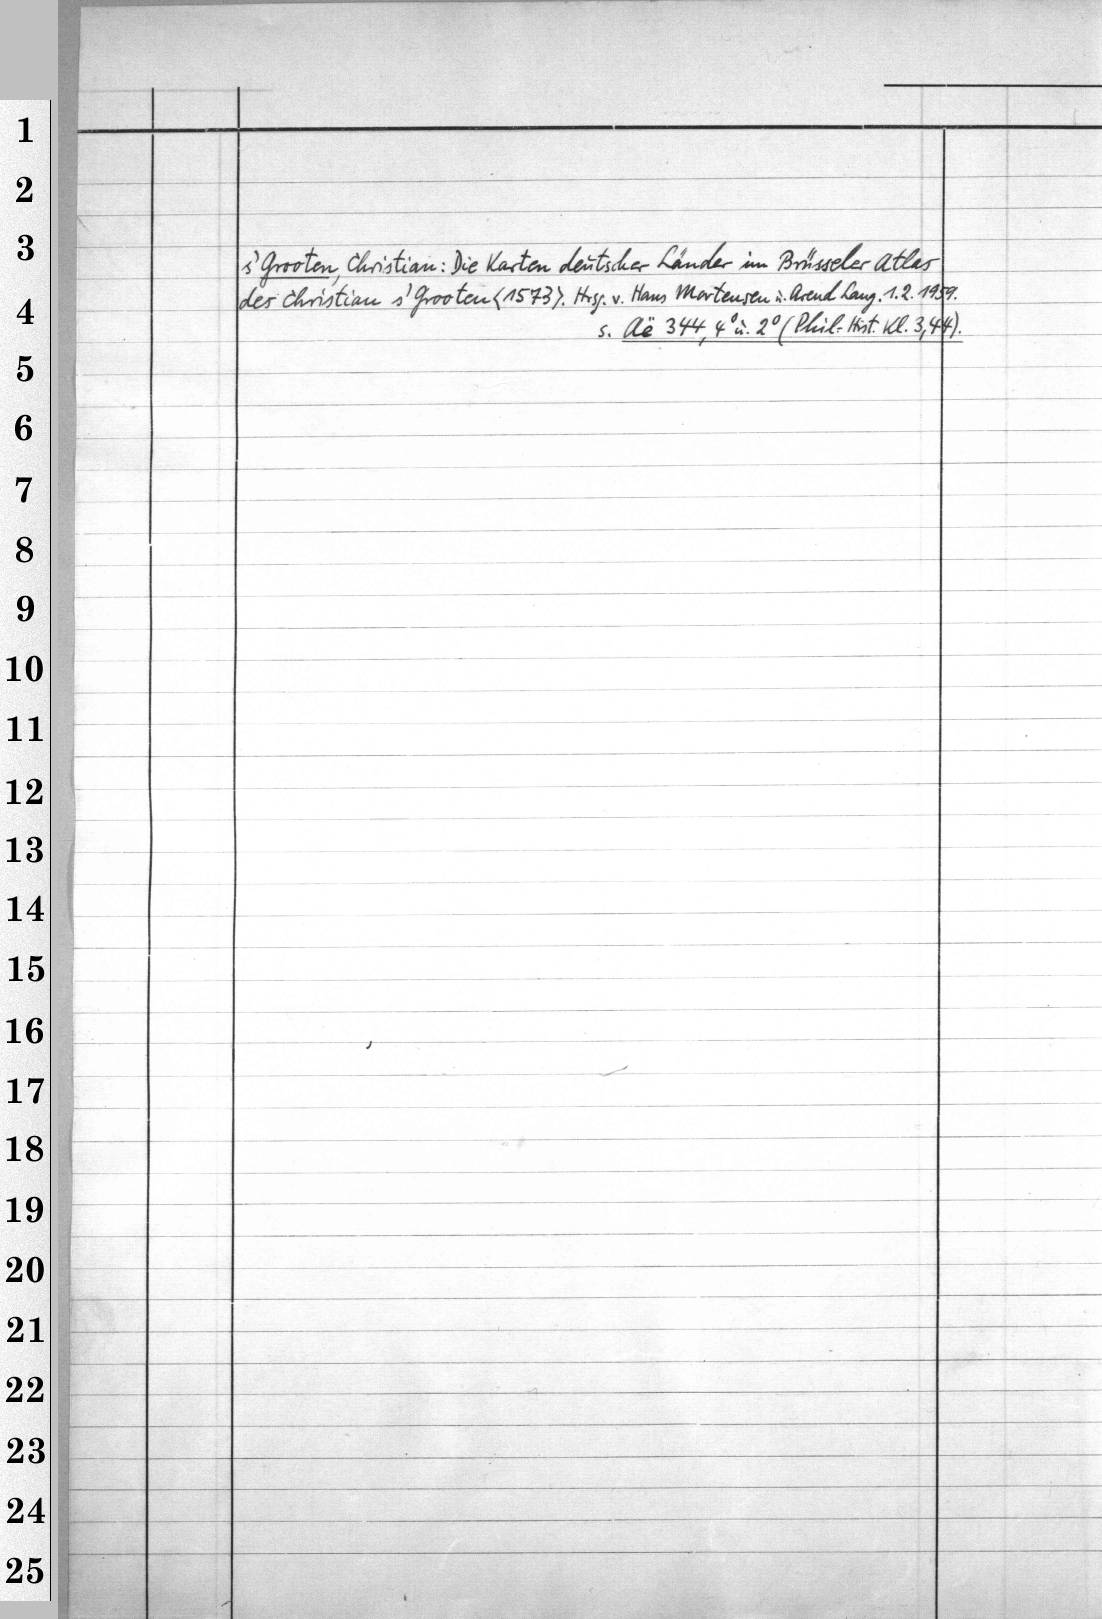 1
2
3
s'Grooten, Christian: Die Karten deutscher Länder im Brüsseler Atlas
des Christian s'Grooten (1573). Hrsg. v. Hans Mortensen u. Arend Lang. 1.2. 1959.
4
s. Aë 344, 4° u. 2° (Phil.-Hist. Kl. 3,44).
5
6
7
8
9
10
11
12
13
14
15
16
17
18
19
20
21
22
23
24
25